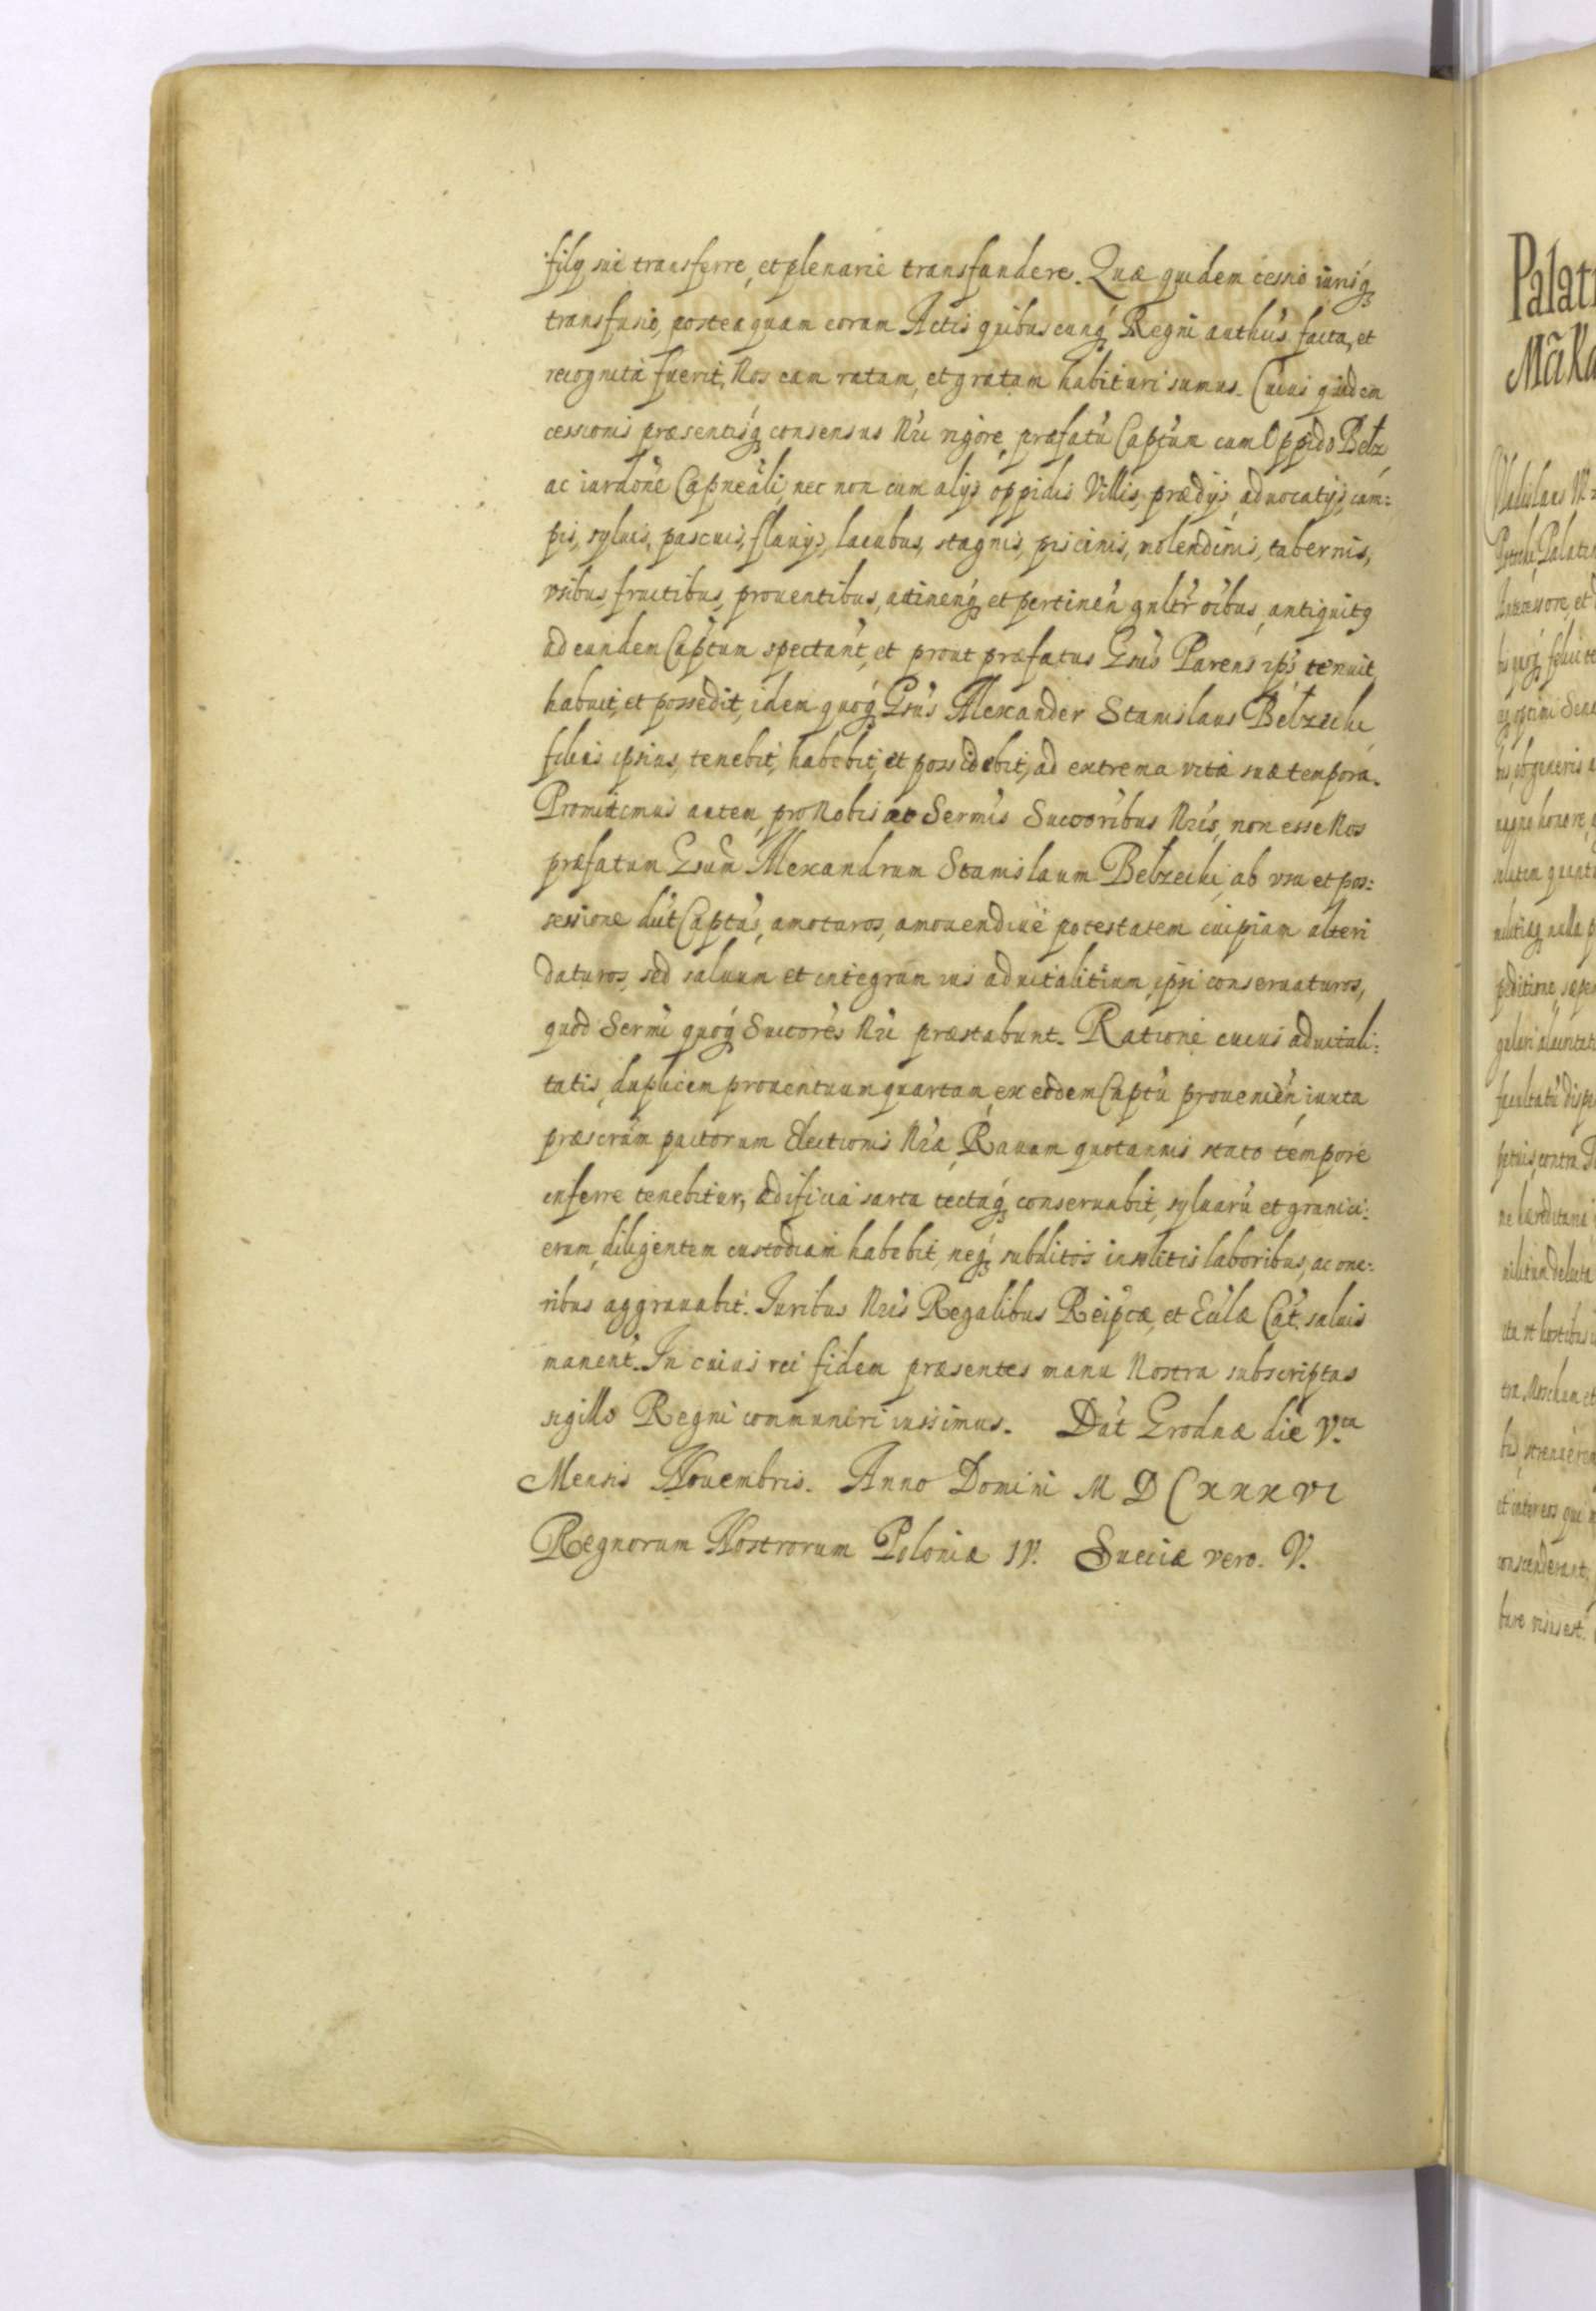 filij sui transferre, et plenarie transfundere. Quæ quidem cessio iurisq₃
transfusio, posteaquam coram Actis quibuscunq₃ Regni authūs facta, et
recognita fuerit, Nos eam ratam, et gratam habituri sumus. Cuius quidem
cessionis præsentisq₃ consensus Nri rigore, præfatū Captum cum Oppido Bełz
ac iurdōne Capneali, nec non cum alijs oppidis Villis, prædijs, aduocatijs, cam:
pis, syluis, pascuis, fluuijs, lacubus, stagnis, piscinis, molendinis, tabernis,
vsibus, fructibus, prouentibus, attinenq₃ et pertinen gnltr oibus, antiquitq
ad eundem Captum spectant, et prout præfatus Gsus Parens ips tenuit
habuit, et possedit, idem quoq₃ Gsus Alexander Stanislaus Bełzecki
filius ipsius, tenebit, habebit, et possidebit, ad extrema vitæ suæ tempora.
Promittimus autem, pro Nobis ac Sermis Succoribus Nris, non esse Nos
præfatum Gsum Alexandrum Stanislaum Bełzecki, ab vsu et pos:
sessione dict Captus, amoturos, amouendiue potestatem cuipiam alteri
daturos, sed saluum et integrum ius aduitalitium, ipsi conseruaturos,
quod Sermi quoq₃ Succores Nri præstabunt. Ratione cuius aduitali:
tatis, duplicem prouentuum quartam, ex eodem Captu prouenien, iuxta
præscrām pactorum Electionis Nræ, Rauam quotannis stato tempore
inferre tenebitur, ædificia sarta tectaq₃ conseruabit, syluarū et granici:
erum, diligentem custodiam habebit, neq₃ subditos insolitis laboribus, ac one:
ribus aggrauabit. Iuribus Nris Regalibus Reipcæ, et Ecclæ Cat. saluis
manent. In cuius rei fidem præsentes manu Nostra subscriptas
sigillo Regni communiri iussimus. Dat Grodnæ die V.ta
Mensis Nouembris. Anno Domini M D C XXX VI
Regnorum Nostrorum Poloniæ IV. Sueciæ vero. V.
Palati
Mãka